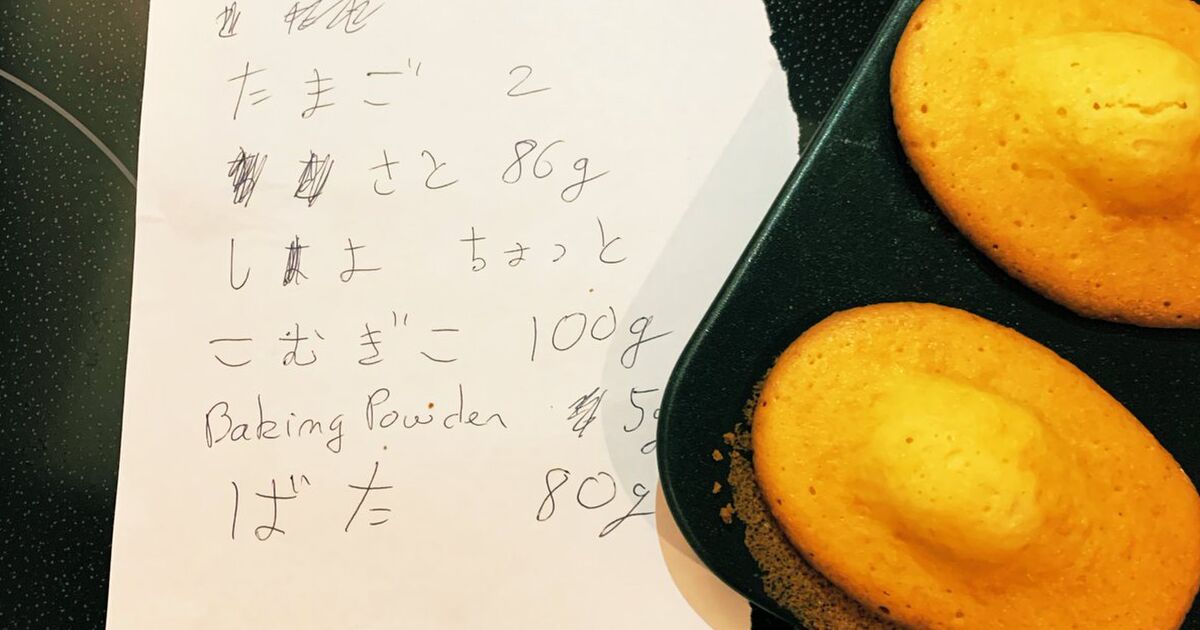 たまご 2
さと 86g
しよ ちょっと
こむぎこ 100g
Baking Powder 5g
ばた 80g